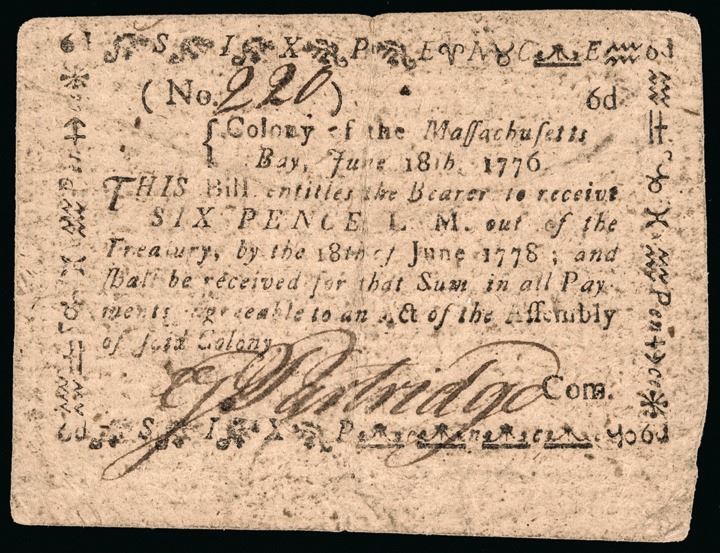 6d SIX PENCE 6d
(No. 220) 6d
Colony of the Maſſachuſetts
Bay, June 18th, 1776
THIS Bill entitles the Bearer to receive
SIX PENCE L. M. out of the
Treaſury, by the 18th of June 1778; and
ſhall be received for that Sum in all Pay
ments agreeable to an Act of the Aſſembly
of ſaid Colony
G Partridge Com.
6d SIX Pence 6d
Pence
Pence